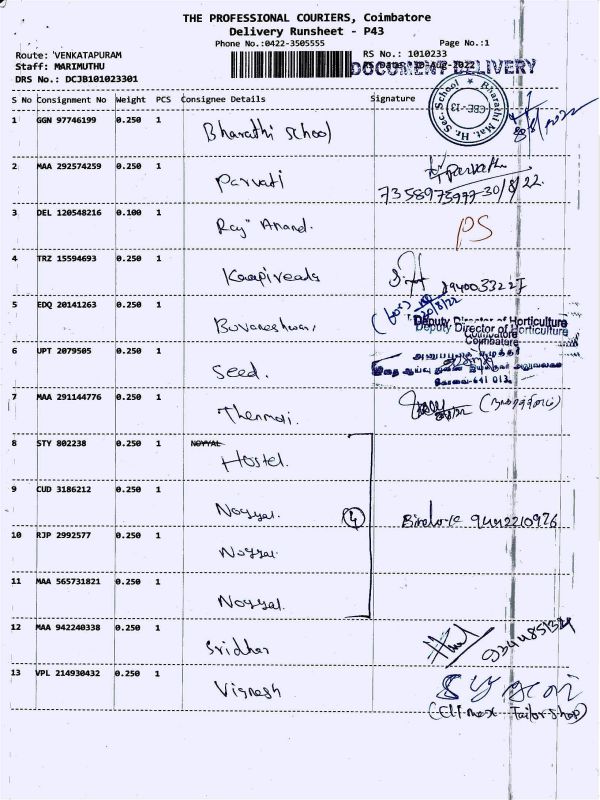 THE PROFESSIONAL COURIERS, Coimbatore
Delivery Runsheet - P43
Phone No.:0422-3505555
Page No.:1
Route: VENKATAPURAM
RS No.: 1010233
Staff: MARIMUTHU
DOCUMENT DELIVERY
DRS No.: DCJB101023301
S No Consignment No Weight PCS Consignee Details Signature
Bharathi Mat. Hr. Sec. School CBE-13
1 GGN 97746199 0.250 1 Bharathi School
2 MAA 292574259 0.250 1 Parvati Parvathi
7358975977-30/8/22.
3 DEL 120548216 0.100 1 Raj Anand. PS
4 TRZ 15594693 0.250 1
5 EDQ 20141263 0.250 1 Buvaneshwari
Deputy Director of Horticulture
Deputy Director of Horticulture
Coimbatore
Coimbatore
6 UPT 2079505 0.250 1 Seed.
கோவை-641 013.
7 MAA 291144776 0.250 1 Thenmoli.
8 STY 802238 0.250 1 NOYYAL Hostel.
9 CUD 3186212 0.250 1 Noyyal. 4 9442210976
10 RJP 2992577 0.250 1 Noyyal.
11 MAA 565731821 0.250 1 Noyyal.
12 MAA 942240338 0.250 1 Sridhar
13 VPL 214930432 0.250 1 Vignesh
(Climax Tailor shop)